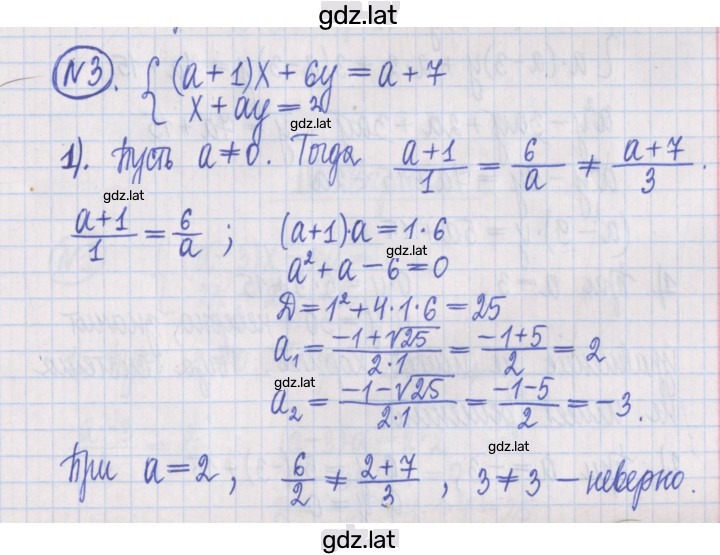 gdz.lat
N3. { (a+1)x + 6y = a+7
x + ay = 3
gdz.lat
1). Пусть a ≠ 0. Тогда (a+1)/1 = 6/a ≠ (a+7)/3.
gdz.lat
(a+1)/1 = 6/a ; (a+1)·a = 1·6
gdz.lat
a² + a − 6 = 0
Д = 1² + 4·1·6 = 25
a₁ = (−1+√25)/(2·1) = (−1+5)/2 = 2
gdz.lat
a₂ = (−1−√25)/(2·1) = (−1−5)/2 = −3.
gdz.lat
При a = 2, 6/2 ≠ (2+7)/3, 3 ≠ 3 – неверно.
gdz.lat
gdz.lat